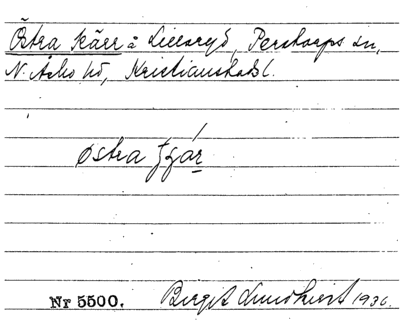 Östra Kärr å Lillaryd, Perstorps sn,
N. Åsbo hd, Kristianstads l.
østra
Nr 5500. Birgit Lundkvist 1936.